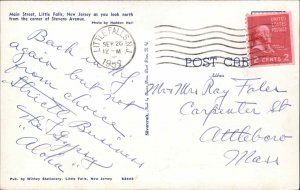 Main Street, Little Falls, New Jersey as you look north
from the corner of Stevens Avenue.
Photo by Madden Hall
LITTLE FALLS, N.J.
SEP 26
12 - M
1952
2 CENTS 2
POST CARD
Back in N.J.
again but not
from choice
"Strictly Business"
The Gypsy
"Aloha"
Mr + Mrs Ray Fales
Carpenter St
Attleboro
Mass
Pub. by Willey Stationery, Little Falls, New Jersey